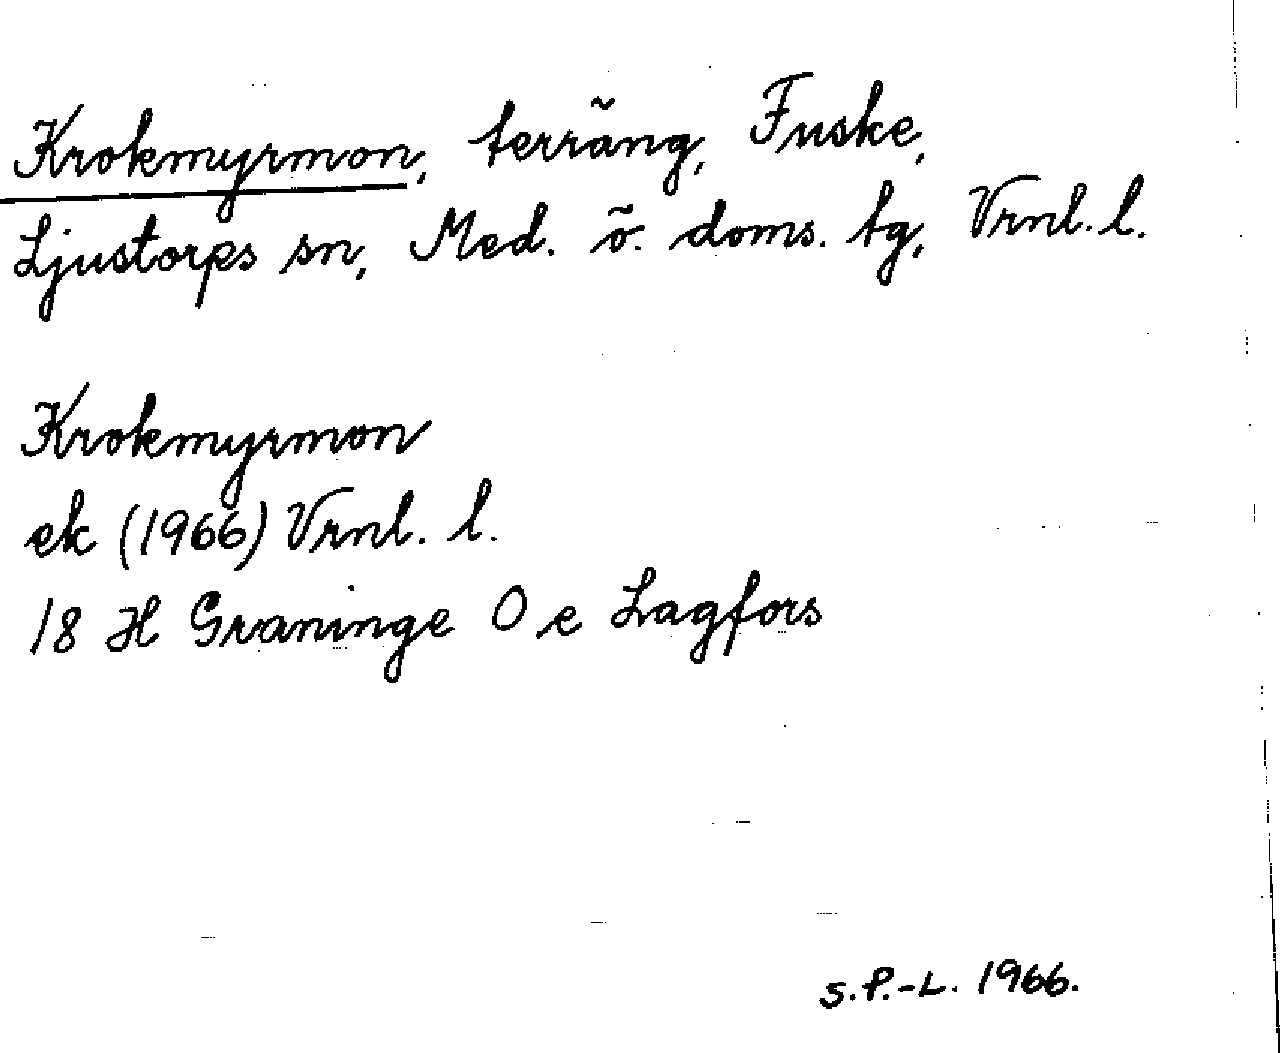 Krokmyrmon, terräng, Fuske,
Ljustorps sn, Med. ö. doms. tg, Vrnl. l.
Krokmyrmon
ek (1966) Vrnl. l.
18 H Graninge 0 e Lagfors
S.P.-L. 1966.